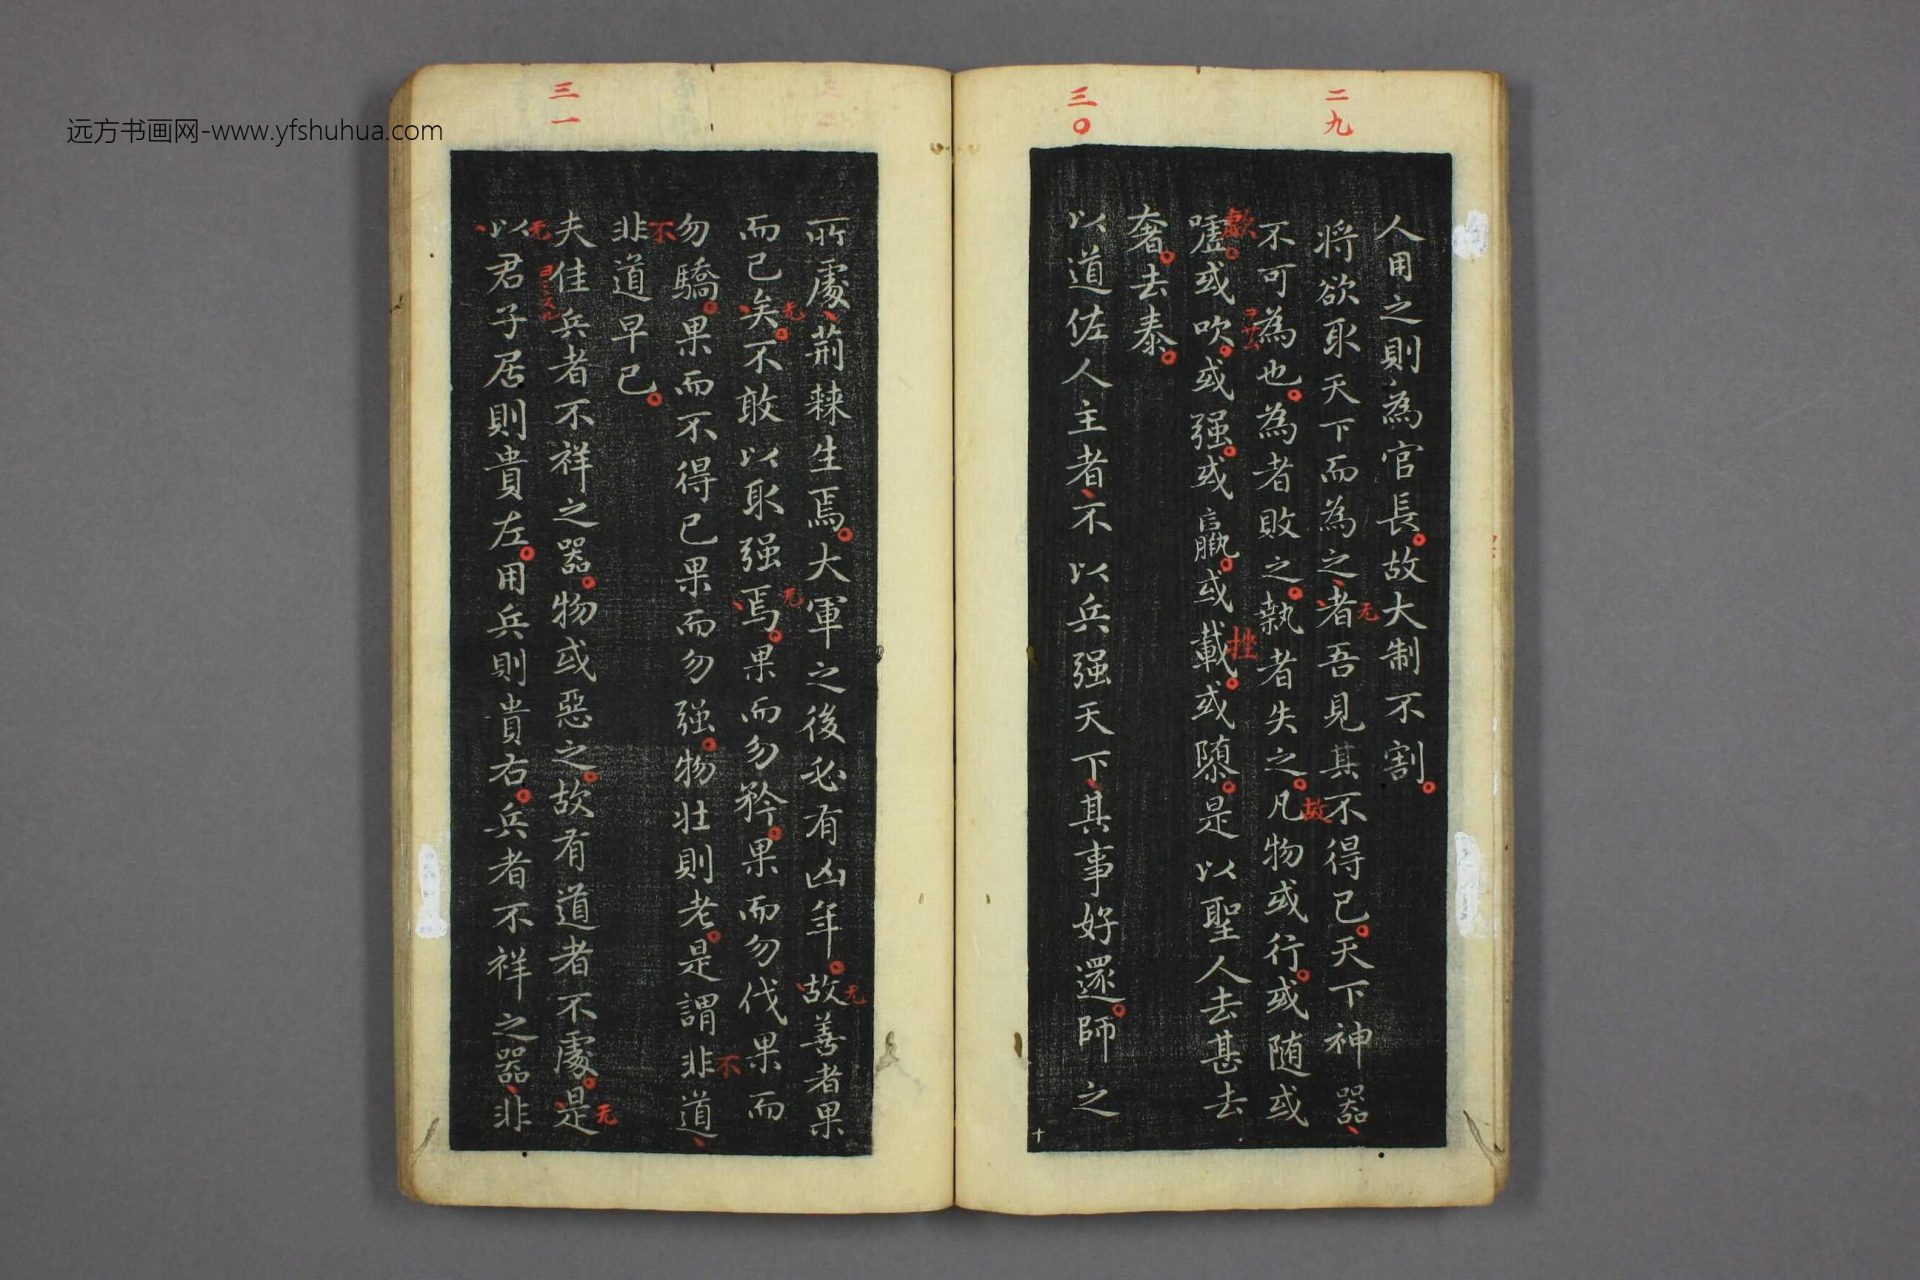 远方书画网-www.yfshuhua.com
二九
三〇
人用之則為官長。故大制不割。
将欲取天下而為之、者吾見其不得已。天下神器、
无
不可為也。為者敗之。執者失之。凡物或行。或随或
故
嘘。或吹。或强。或羸。或載。或隳。是以聖人去甚去
歔
挫
奢。去泰。
以道佐人主者、不以兵强天下、其事好還。師之
十
三一
所處、荊棘生焉。大軍之後必有凶年。故善者果
无
而已矣。不敢以取强焉。果而勿矜。果而勿伐果而
无
无
勿驕。果而不得已果而勿强。物壯則老。是謂非道、
不
非道早已。
不
夫佳兵者不祥之器。物或惡之。故有道者不處。是
无
以君子居則貴左。用兵則貴右。兵者不祥之器、非
无